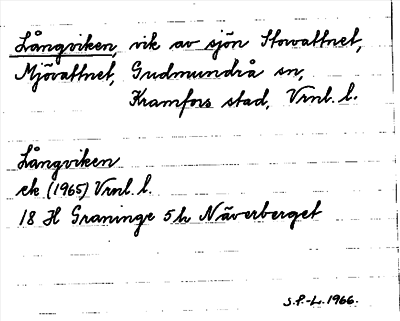 Långviken, vik av sjön Storvattnet,
Mjövattnet, Gudmundrå sn,
Kramfors stad, Vrnl. l.
Långviken
ek (1965) Vrnl. l.
18 H Graninge 5h Näverberget
S.P.-L. 1966.